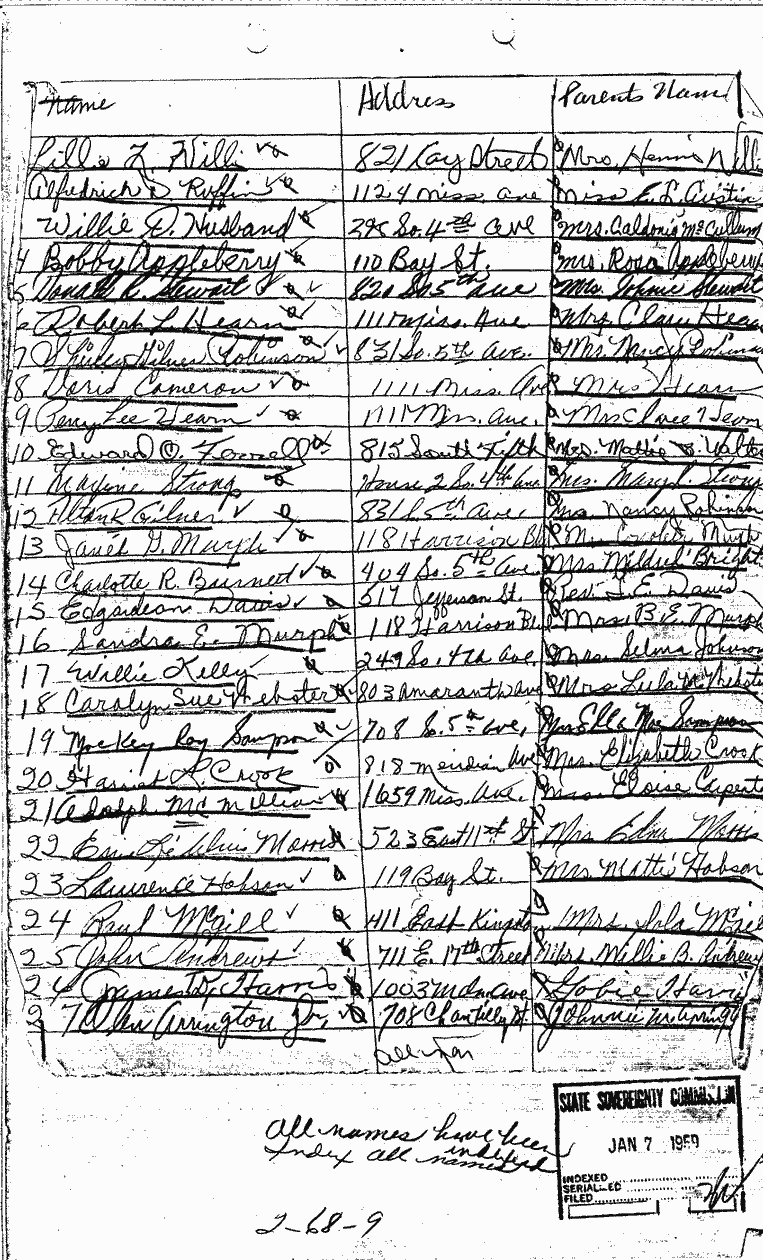 Name Address Parents Name
Lillie L. Willi 821 Kay Street Mrs. Hennis Willi
Alfedrich D. Ruffin 1124 Miss. Ave Miss E. L. Austin
Willie D. Husband 295 So. 4th Ave Mrs. Caldonia McCullum
4 Bobby Appleberry 110 Bay St. Mrs. Rosa Appleberry
5 Donald R. Stewart 820 So 5th Ave Mrs. Johnie Stewart
6 Robert L. Hearn 1111 Miss. Ave Mrs. Clare Hearn
7 Gilner Robinson 831 So. 5th Ave. Mrs Nancy Robinson
8 Doris Cameron 1111 Miss. Ave Mrs Hearn
9 Percy Lee Hearn 1111 Miss. Ave. Mrs Claree Hearn
10 Edward O. Ferrell 815 South Fifth Mrs. Mattie B. Walter
11 Maxine Strong House 2 So. 4th Ave Mrs. Mary L. Strong
12 Gilner 831 S. 5th Ave Mrs Nancy Robinson
13 Janet G. Murph 118 Harrison Bl Mrs Murph
14 Charlotte R. Burnett 404 So. 5th Ave Mrs Mildred Bright
15 Edgsideon Davis 517 Jefferson St. Rest. I. E. Davis
16 Sandra E. Murph 118 Harrison Bl Mrs. B. E. Murph
17 Willie Kelly 249 So. 4th Ave. Mrs. Selma Johnson
18 Carolyn Sue Webster 803 Amaranth Ave Mrs Lula M. Webste
19 Mackey Roy Sampson 708 So. 5th Ave, Mrs Ella Mae Sampson
20 Harriet L. Crook 818 Meridian Ave Mrs. Elizabeth Crook
21 Adolph McMillian 1659 Miss. Ave. Mrs. Eloise Carpent
22 Morris 523 East 11th St Mrs Edna Morris
23 Lawrence Hobson 119 Bay St. Mrs Mattie Hobson
24 Paul McGill 411 East Kingston Mrs. Iola McGill
25 John Andrews 711 E. 17th Street Mrs. Willie B. Andrews
26 James D. Harris 1003 Mdn. Ave Gobie Harri
27 Dan Arrington Jr. 708 Chantilly St. Johnnie Mae Arringt
All names have been
Index all names indexed
STATE SOVEREIGNTY COMMISSION
JAN 7 1959
INDEXED
SERIALIZED
FILED
2-68-9